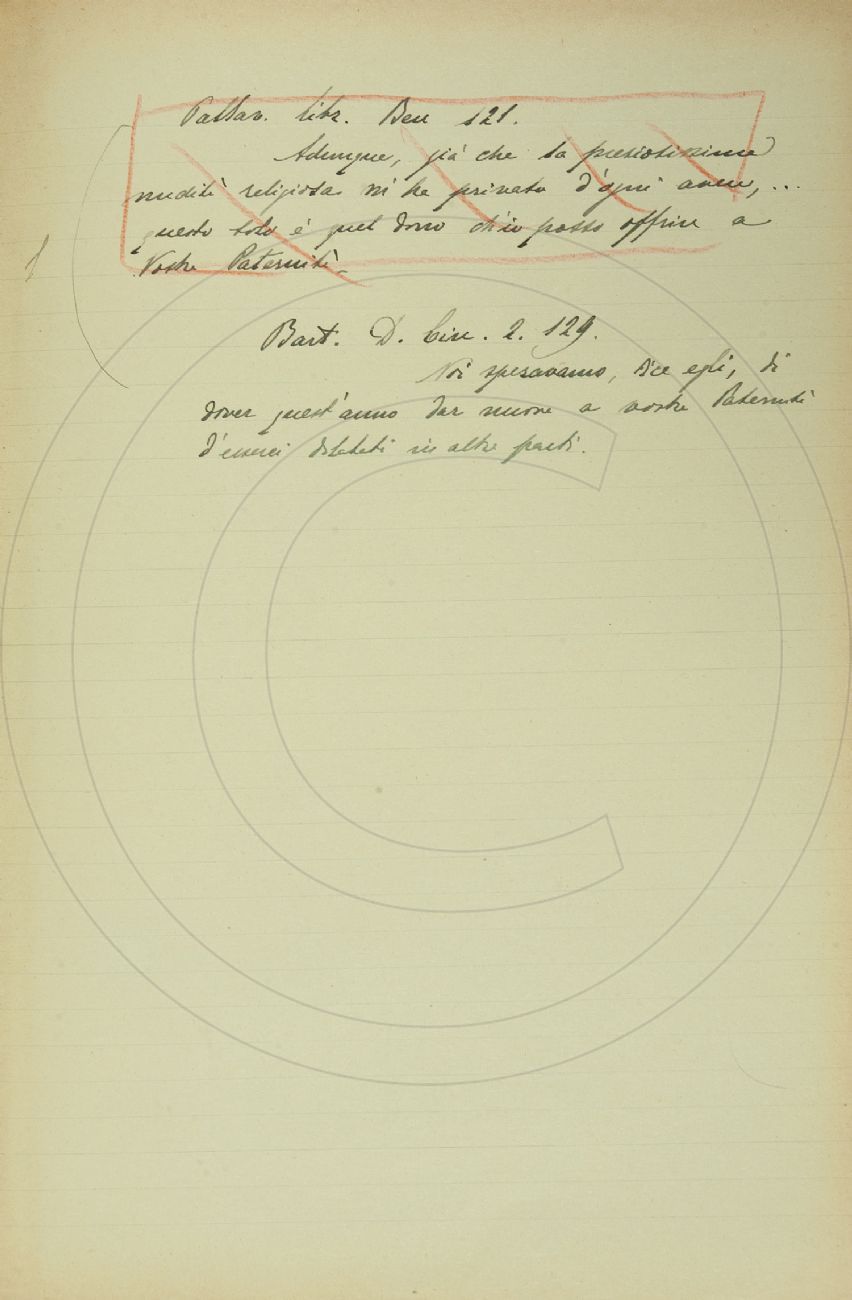 Pallav. libr. Ben 121.
Adunque, già che la preziosissima
nudità religiosa m'ha privato d'ogni avere, ...
questo solo è quel dono ch'io posso offrire a
Vostra Paternità.
1
Bart. D. Cin. 2. 129.
Noi speravamo, dice egli, di
dover quest'anno dar nuove a vostra Paternità
d'esserci dilatati in altre parti.